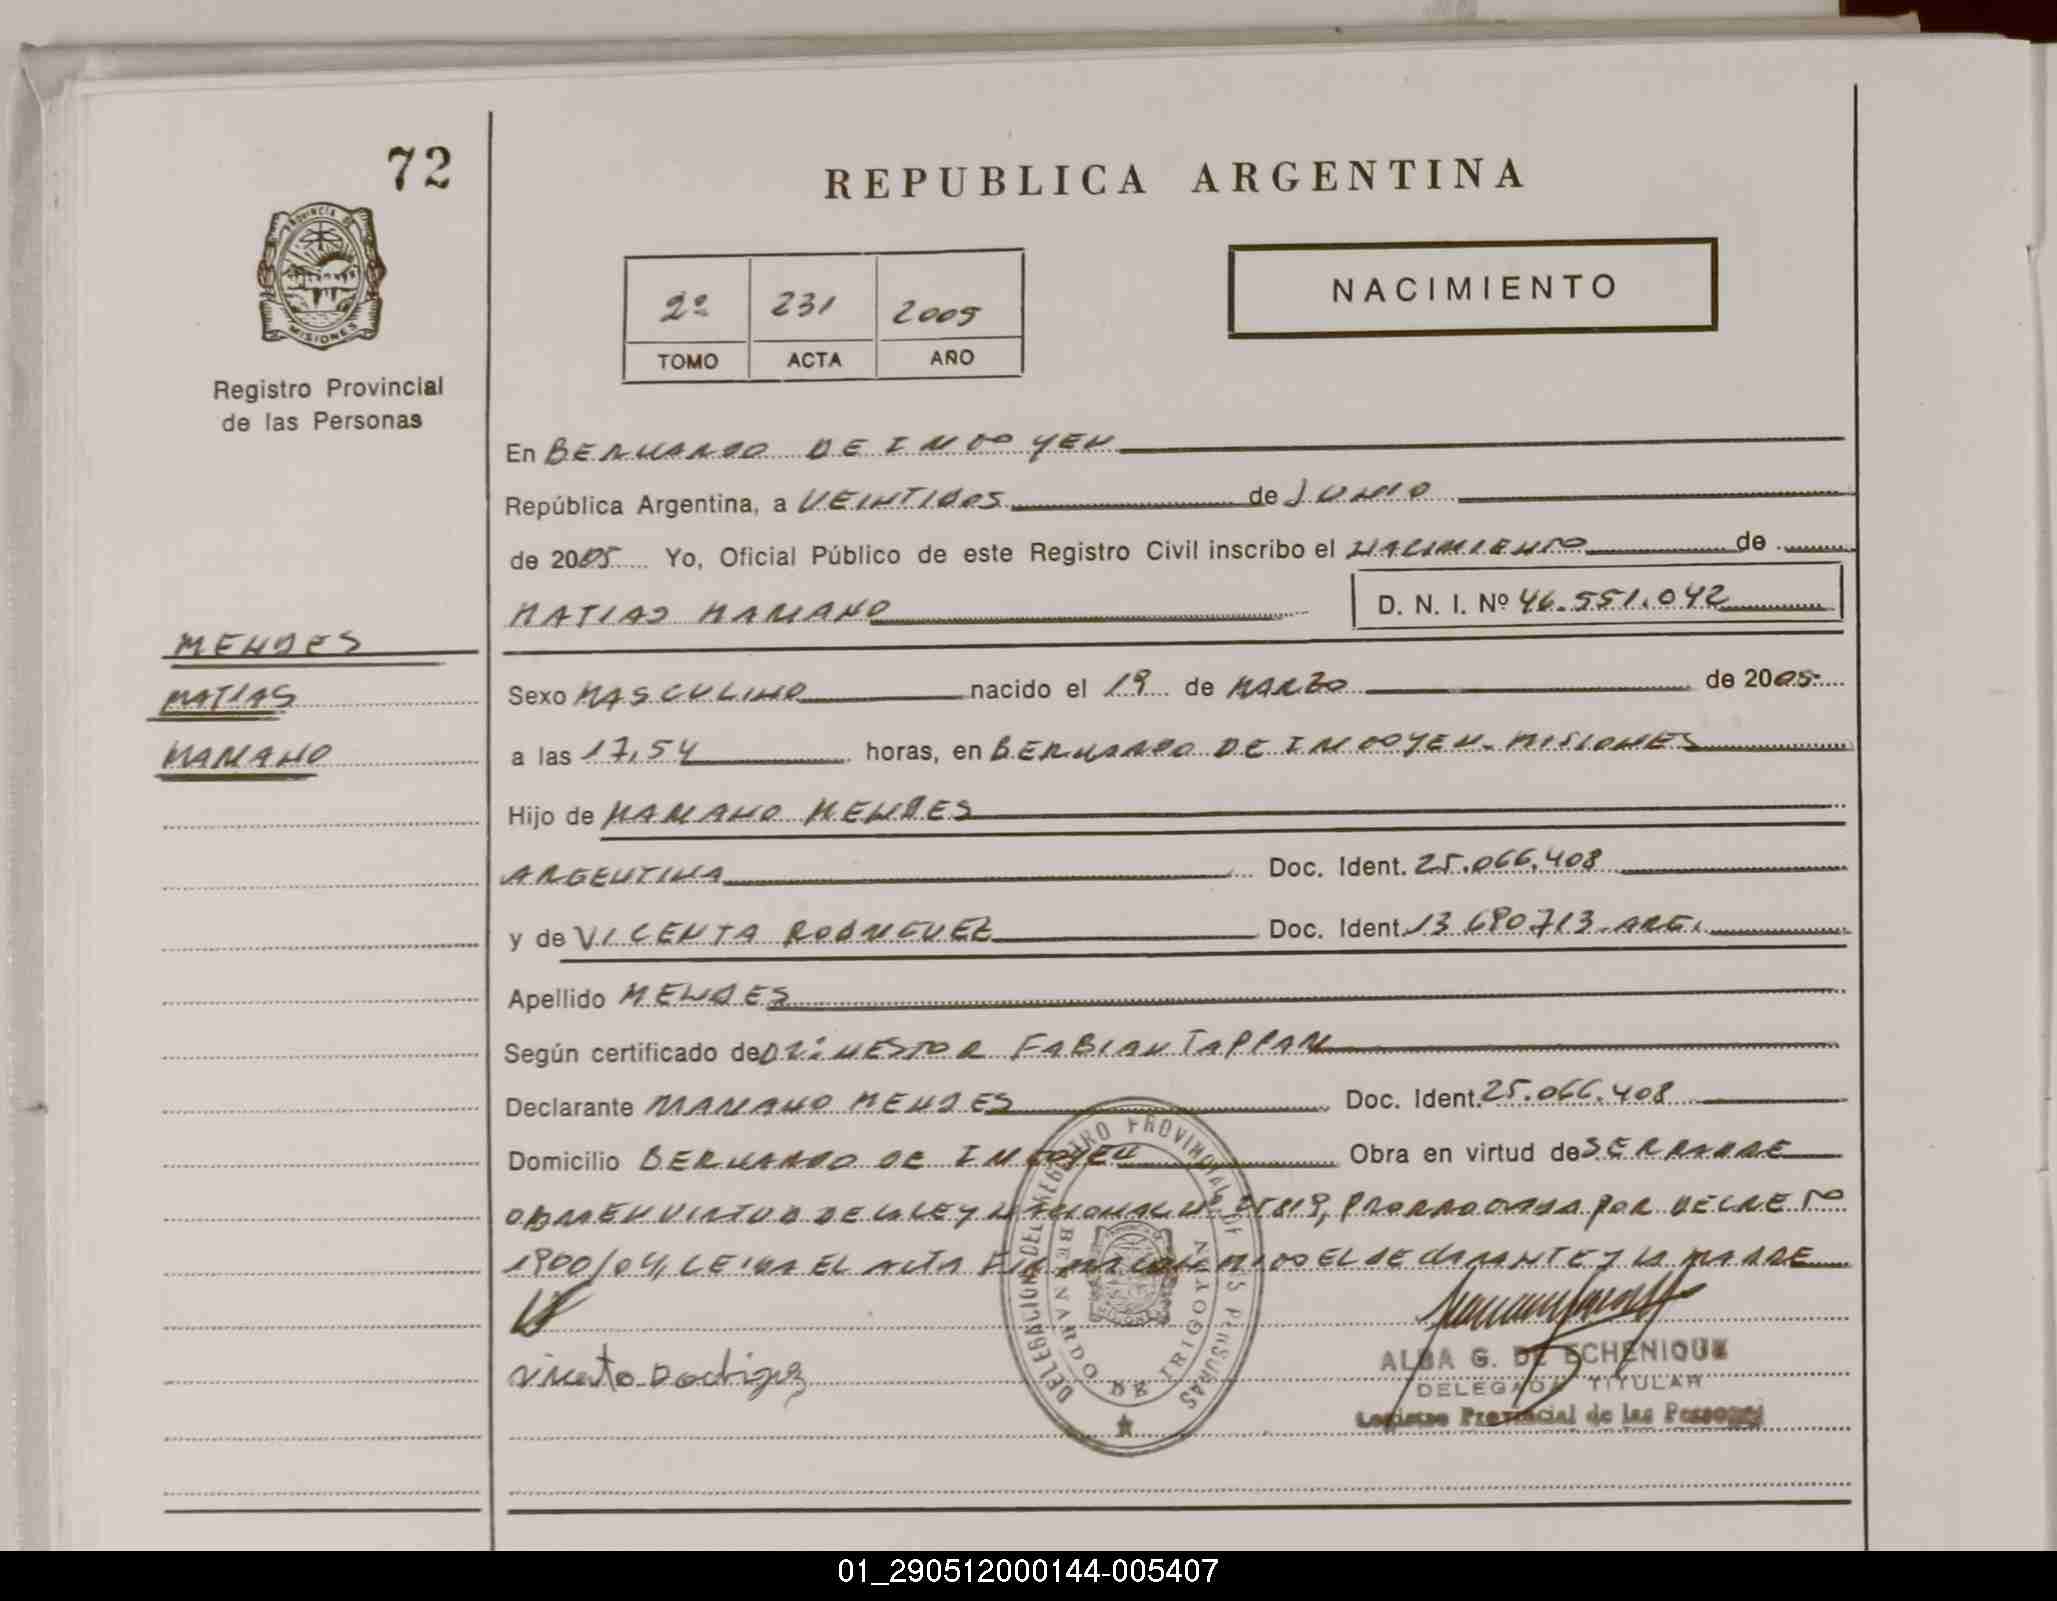 72
REPUBLICA ARGENTINA
PROVINCIA DE
MISIONES
Registro Provincial
de las Personas
2º 231 2005
TOMO ACTA AÑO
NACIMIENTO
En BERNARDO DE IRIGOYEN
República Argentina, a VEINTIDOS de JUNIO
de 2005 Yo, Oficial Público de este Registro Civil inscribo el NACIMIENTO de
MATIAS MARIANO D. N. I. Nº 46.551.042
MENDES
MATIAS
MARIANO
Sexo MASCULINO nacido el 19 de MARZO de 2005
a las 17,54 horas, en BERNARDO DE IRIGOYEN. MISIONES
Hijo de MARIANO MENDES
ARGENTINA Doc. Ident. 25.066.408
y de VICENTA RODRIGUEZ Doc. Ident. 13 690713. ARG.
Apellido MENDES
Según certificado de DR: NESTOR FABIAN TAPPARI
Declarante MARIANO MENDES Doc. Ident. 25.066.408
Domicilio BERNARDO DE IRIGOYEN Obra en virtud de SER PADRE
OBRA EN VIRTUD DE LA LEY NACIONAL Nº 25819, PRORROGADA POR DECRETO
1900/04, LEIDA EL ACTA FIRMAN CONMIGO EL DECLARANTE Y LA MADRE
DELEGACION DEL REGISTRO PROVINCIAL DE LAS PERSONAS
BERNARDO DE IRIGOYEN
ALBA G. DE ECHENIQUE
DELEGADA TITULAR
Registro Provincial de las Personas
01_290512000144-005407